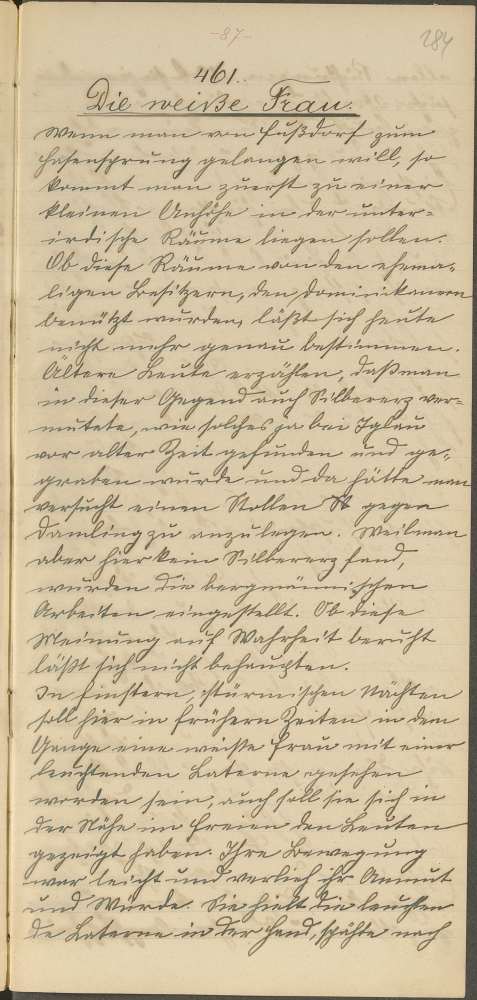 -87-
284
461.
Die weiße Frau.
Wenn man von Fußdorf zum
Hasensprung gelangen will, so
kommt man zuerst zu einer
kleinen Anhöhe in der unter-
irdische Räume liegen sollen.
Ob diese Räume von den ehema-
ligen Besitzern, den Dominikanern
benützt wurden, läßt sich heute
nicht mehr genau bestimmen.
Ältere Leute erzählen, daß man
in dieser Gegend auch Silbererz ver-
mutete, wie solches ja bei Iglau
vor alter Zeit gefunden und ge-
graben wurde und da hätte man
versucht einen Stollen gegen
zu anzulegen. Weil man
aber hier kein Silbererz fand,
wurden die bergmännischen
Arbeiten eingestellt. Ob diese
Meinung auf Wahrheit beruht
läßt sich nicht behaupten.
In finstern, stürmischen Nächten
soll hier in frühern Zeiten in dem
Gange eine weiße Frau mit einer
leuchtenden Laterne gesehen
worden sein, auch soll sie sich in
der Nähe im Freien den Leuten
gezeigt haben. Ihre Bewegung
war leicht und verlieh ihr Anmut
und Würde. Sie hielt die leuchten
de Laterne in der Hand, spähte nach